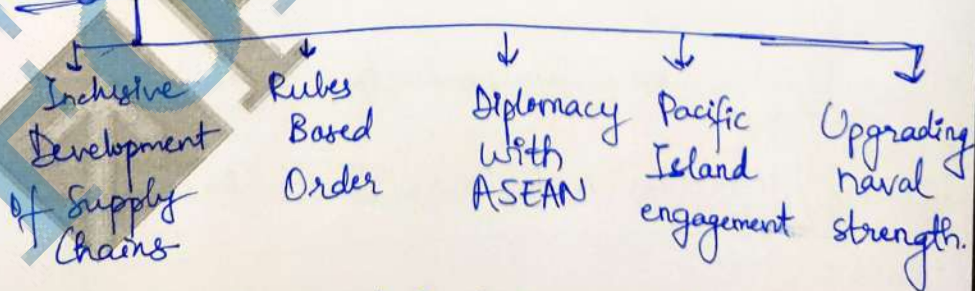 Inclusive
Development
of Supply
Chains
Rules
Based
Order
Diplomacy
with
ASEAN
Pacific
Island
engagement
Upgrading
naval
strength.